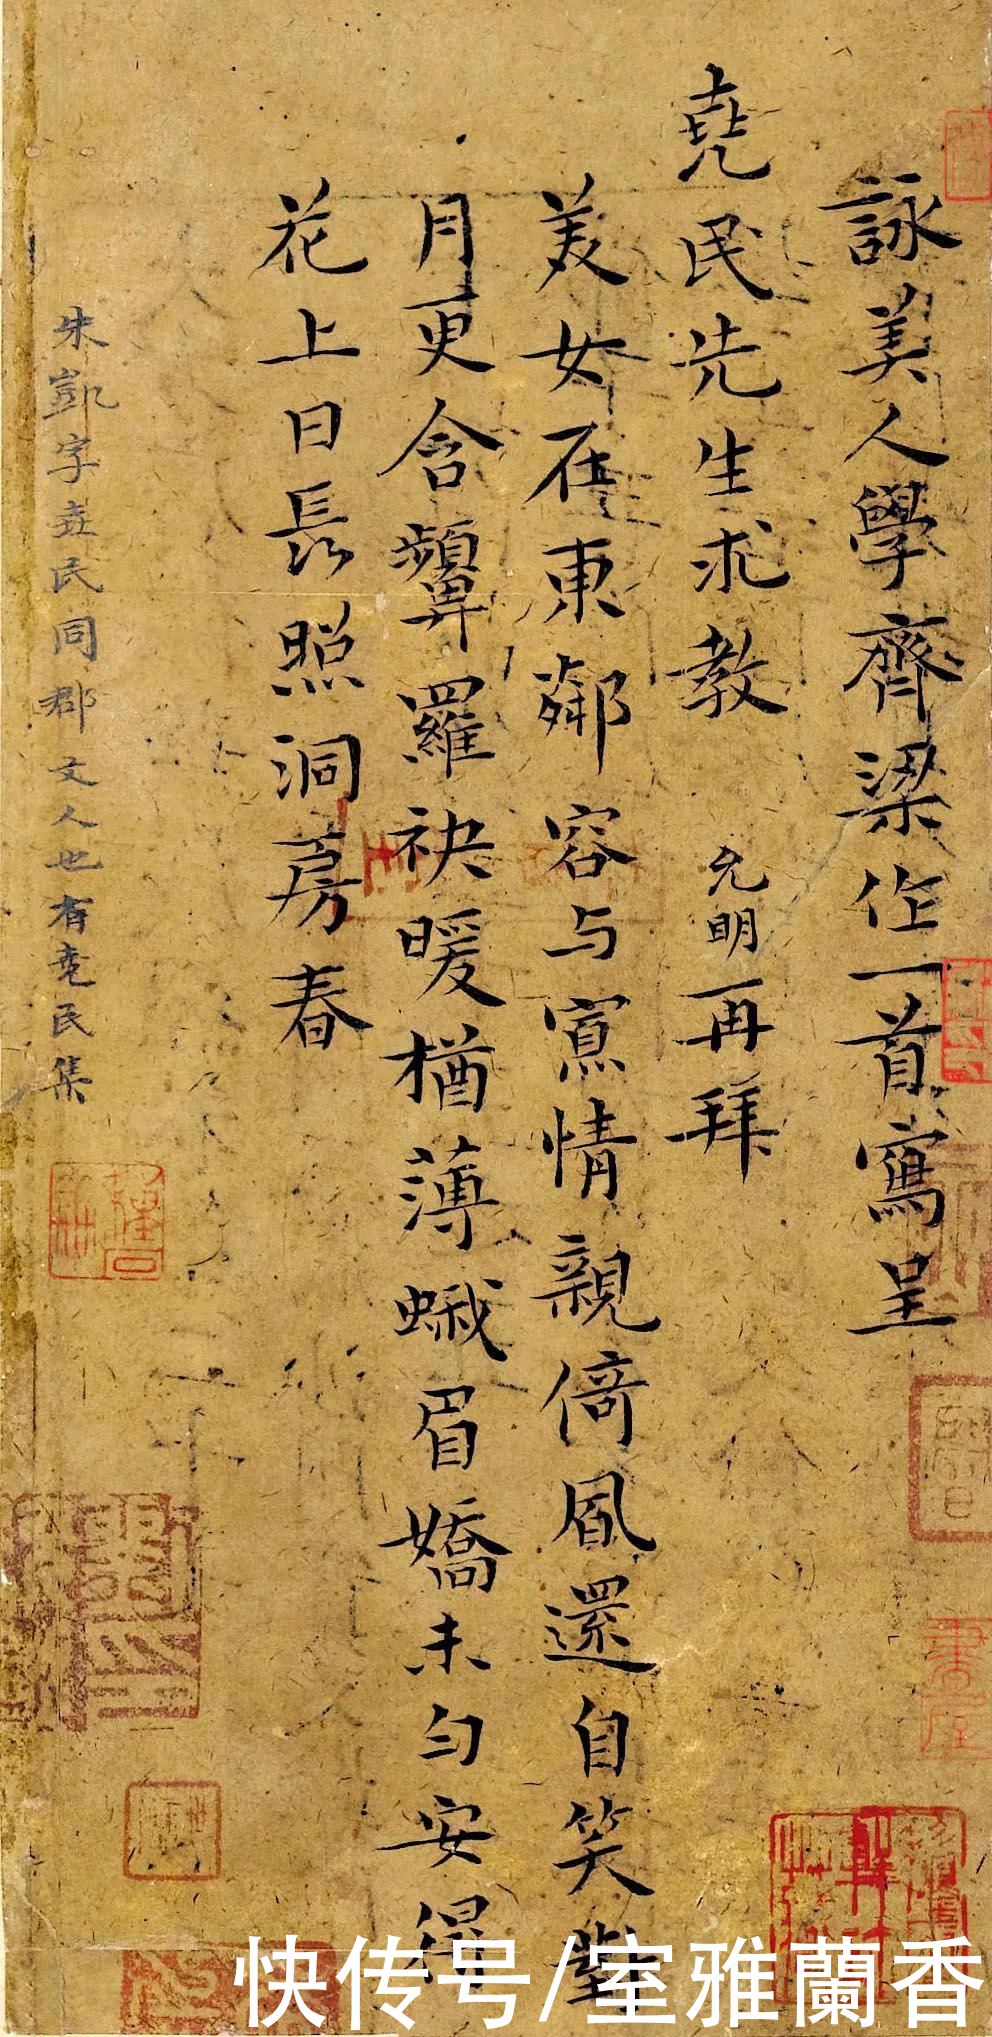 詠美人學齊梁作一首寫呈
堯民先生求教 允明再拜
美女在東鄰容与寘情親倚風還自笑對
月更含顰羅袂暖猶薄蛾眉嬌未勻安得
花上日長照洞房春
朱凱字堯民同郡文人也有堯民集
快传号/室雅蘭香